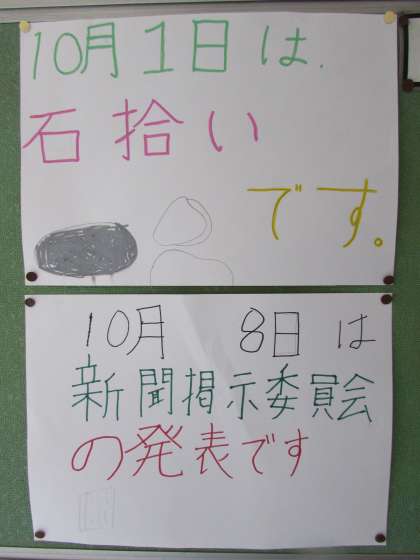 10月1日は.
石拾い
です。
10月 8日は
新聞掲示委員会
の発表です